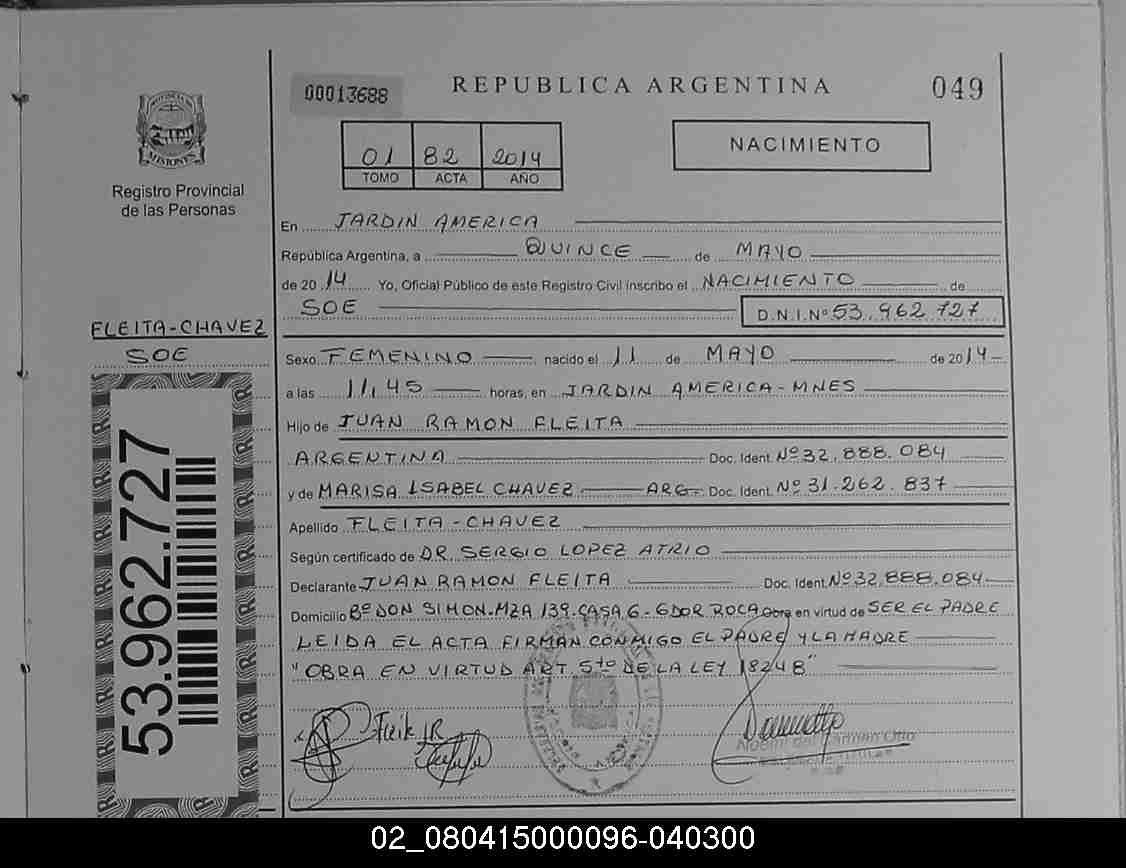 00013688
REPUBLICA ARGENTINA
049
PROVINCIA DE
MISIONES
Registro Provincial
de las Personas
01 82 2014
TOMO ACTA AÑO
NACIMIENTO
En JARDIN AMERICA
República Argentina, a QUINCE de MAYO
de 2014 Yo, Oficial Público de este Registro Civil inscribo el NACIMIENTO de
SOE D.N.I. Nº 53.962.727
FLEITA-CHAVEZ
SOE
Sexo FEMENINO nacido el 11 de MAYO de 2014
a las 11,45 horas, en JARDIN AMERICA-MNES
Hijo de JUAN RAMON FLEITA
ARGENTINA Doc. Ident. Nº 32.888.084
y de MARISA ISABEL CHAVEZ ARG- Doc. Ident. Nº 31.262.837
Apellido FLEITA-CHAVEZ
Según certificado de DR. SERGIO LOPEZ ATRIO
Declarante JUAN RAMON FLEITA Doc. Ident. Nº 32.888.084
Domicilio Bº DON SIMON-MZA 139.CASA 6-GDOR ROCA Obra en virtud de SER EL PADRE
LEIDA EL ACTA FIRMAN CONMIGO EL PADRE Y LA MADRE
"OBRA EN VIRTUD ART. 5to DE LA LEY 18248"
53.962.727
02_080415000096-040300